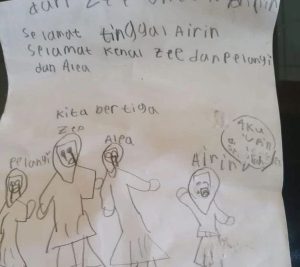 dan Zee untuk Airin
Selamat tinggal Airin
Selamat kenal Zee dan pelangi
dan Alea
kita bertiga
Zee
Alea
pelangi
Airin
AKU